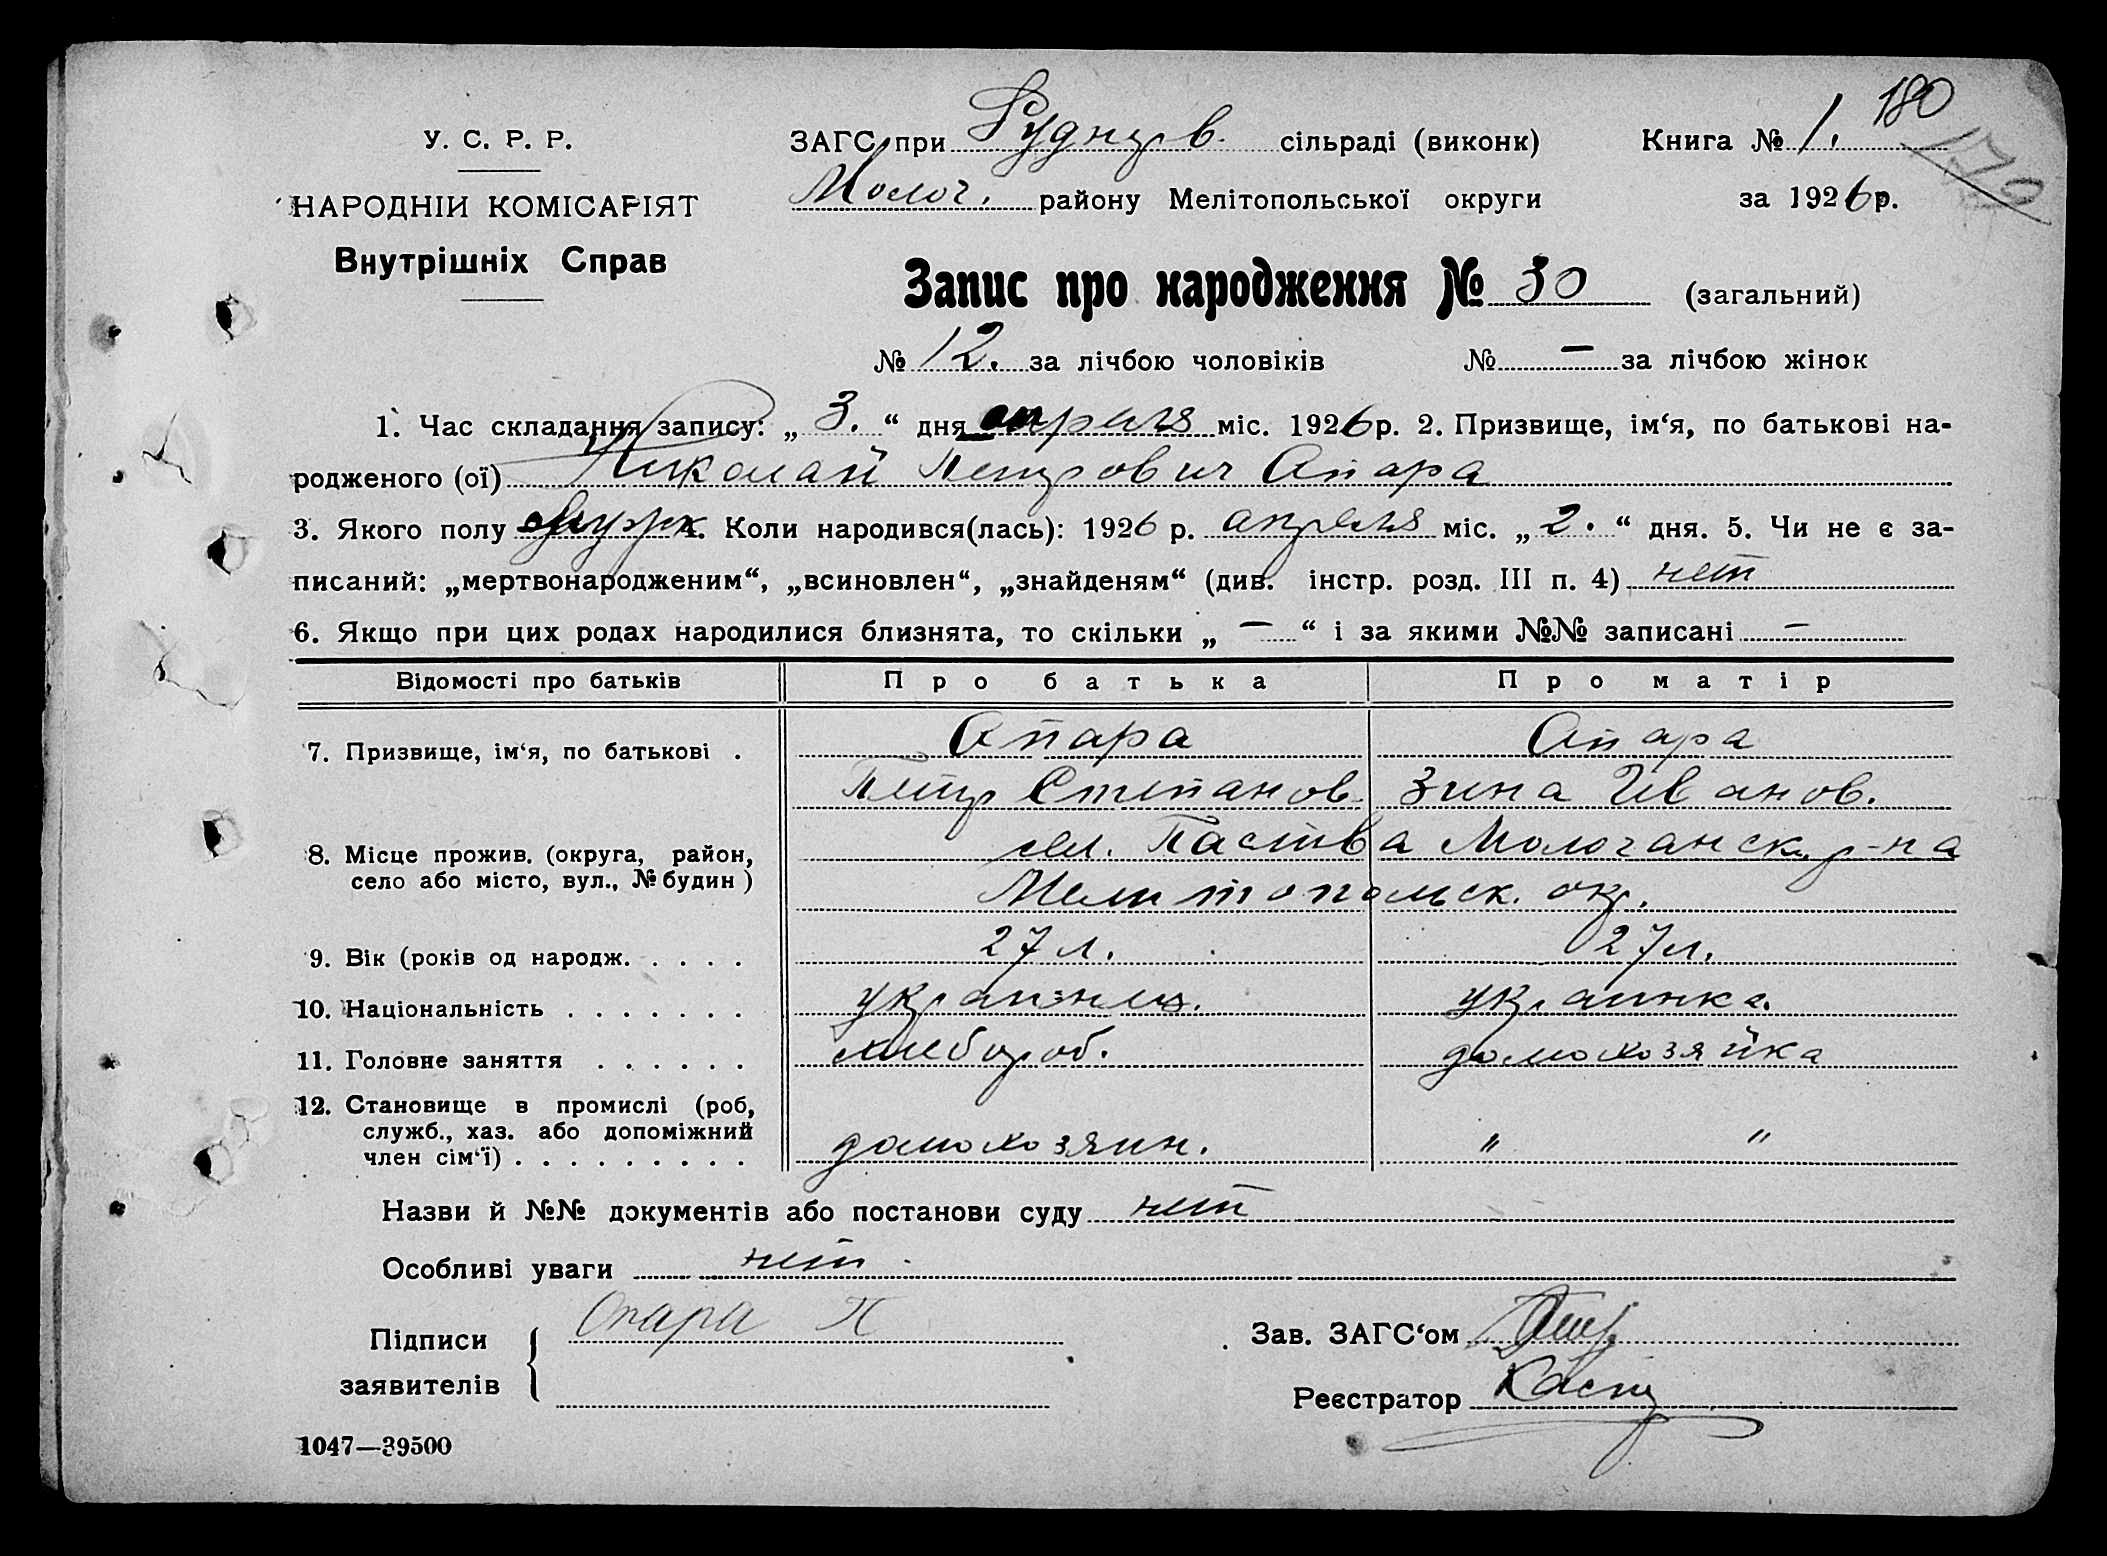 180
У. С. Р. Р. ЗАГС при Руднув. сільраді (виконк) Книга № 1. 179
НАРОДНІЙ КОМІСАРІЯТ Молоч. району Мелітопольської округи за 1926 р.
Внутрішніх Справ
Запис про народження № 30 (загальний)
№ 12. за лічбою чоловіків № — за лічбою жінок
1. Час складання запису: „ 3. “ дня апреля міс. 1926 р. 2. Призвище, ім‘я, по батькові на-
родженого (ої) Николай Петрович Опара
3. Якого полу мужск 4. Коли народився(лась): 1926 р. апреля міс. „ 2. “ дня. 5. Чи не є за-
писаний: „мертвонародженим“, „всиновлен“, „знайденям“ (див. інстр. розд. III п. 4) нет
6. Якщо при цих родах народилися близнята, то скільки „ — “ і за якими №№ записані —
Відомості про батьків Про батька Про матір
7. Призвище, ім‘я, по батькові . Опара Опара
Петр Степанов. Зина Иванов.
8. Місце прожив. (округа, район, сел. Паства Молочанск. р-на
село або місто, вул., № будин ) Мелитопольск. окр.
9. Вік (років од народж. . . . . 27 л. 27 л.
10. Національність . . . . . . . украинец. украинка.
11. Головне заняття . . . . . . хлебороб. домохозяйка
12. Становище в промислі (роб,
служб., хаз. або допоміжний
член сім‘ї) . . . . . . . . . домохозяин. " "
Назви й №№ документів або постанови суду нет
Особливі уваги нет.
Підписи Опара П Зав. ЗАГС‘ом
заявителів Реєстратор
1047—39500